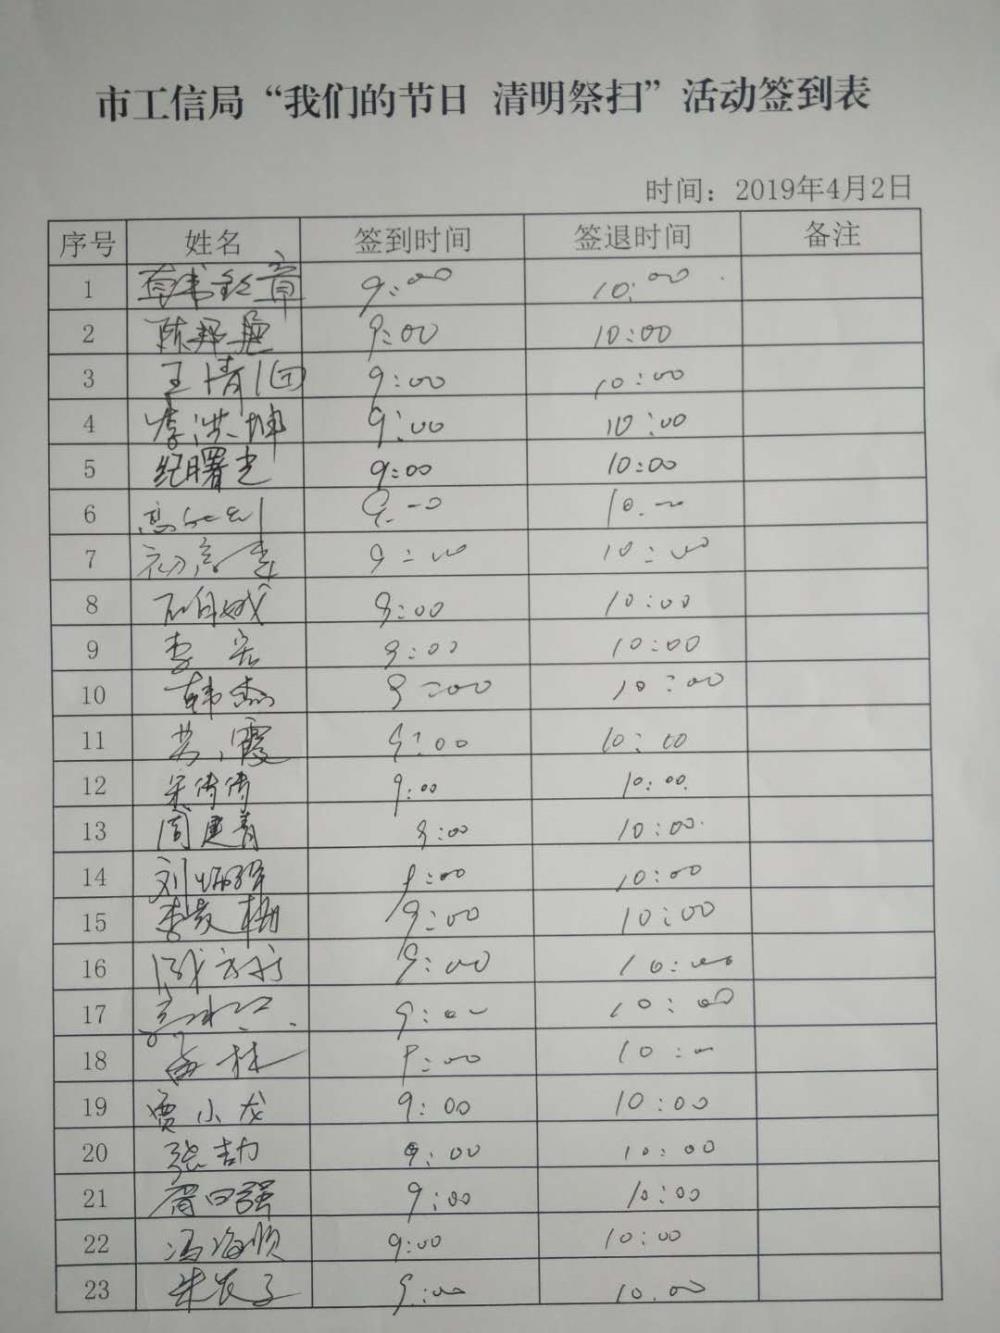 市工信局“我们的节日 清明祭扫”活动签到表
时间：2019年4月2日
序号 姓名 签到时间 签退时间 备注
1 9:00 10:00
2 9:00 10:00
3 9:00 10:00
4 李洪坤 9:00 10:00
5 纪曙光 9:00 10:00
6 9:00 10:00
7 9:00 10:00
8 9:00 10:00
9 李宏 9:00 10:00
10 韩杰 9:00 10:00
11 苏霞 9:00 10:00
12 宋倩倩 9:00 10:00
13 周建青 9:00 10:00
14 9:00 10:00
15 9:00 10:00
16 9:00 10:00
17 9:00 10:00
18 9:00 10:00
19 贾小龙 9:00 10:00
20 张劼 9:00 10:00
21 9:00 10:00
22 冯海顺 9:00 10:00
23 9:00 10:00